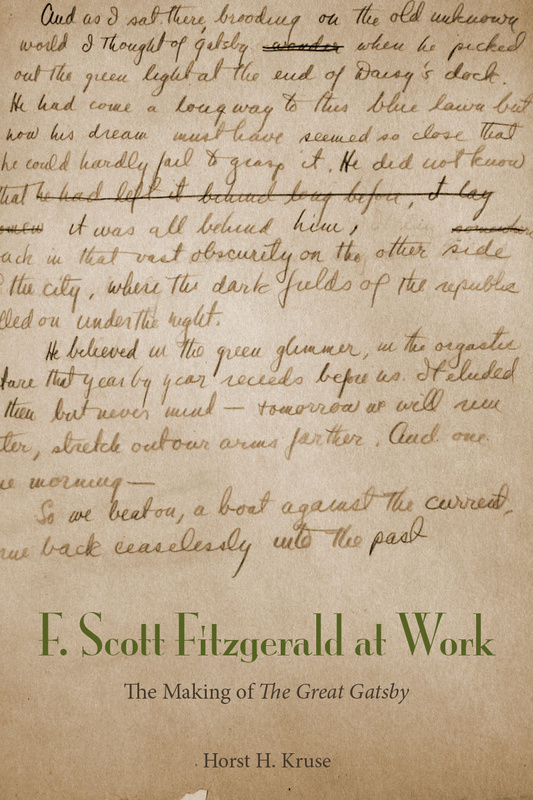 And as I sat there, brooding on the old unknown
world I thought of Gatsby wonder when he picked
out the green light at the end of Daisy's dock.
He had come a long way to this blue lawn but
now his dream must have seemed so close that
he could hardly fail to grasp it. He did not know
that he had left it behind long before, it lay
it was all behind him, somewhere
ack in that vast obscurity on the other side
the city, where the dark fields of the republic
lled on under the night.
He believed in the green glimmer, in the orgastic
ture that year by year receeds before us. It eluded
then but never mind — tomorrow we will run
ter, stretch out our arms farther. And one
ne morning —
So we beat on, a boat against the current,
rne back ceaselessly into the past
F. Scott Fitzgerald at Work
The Making of The Great Gatsby
Horst H. Kruse